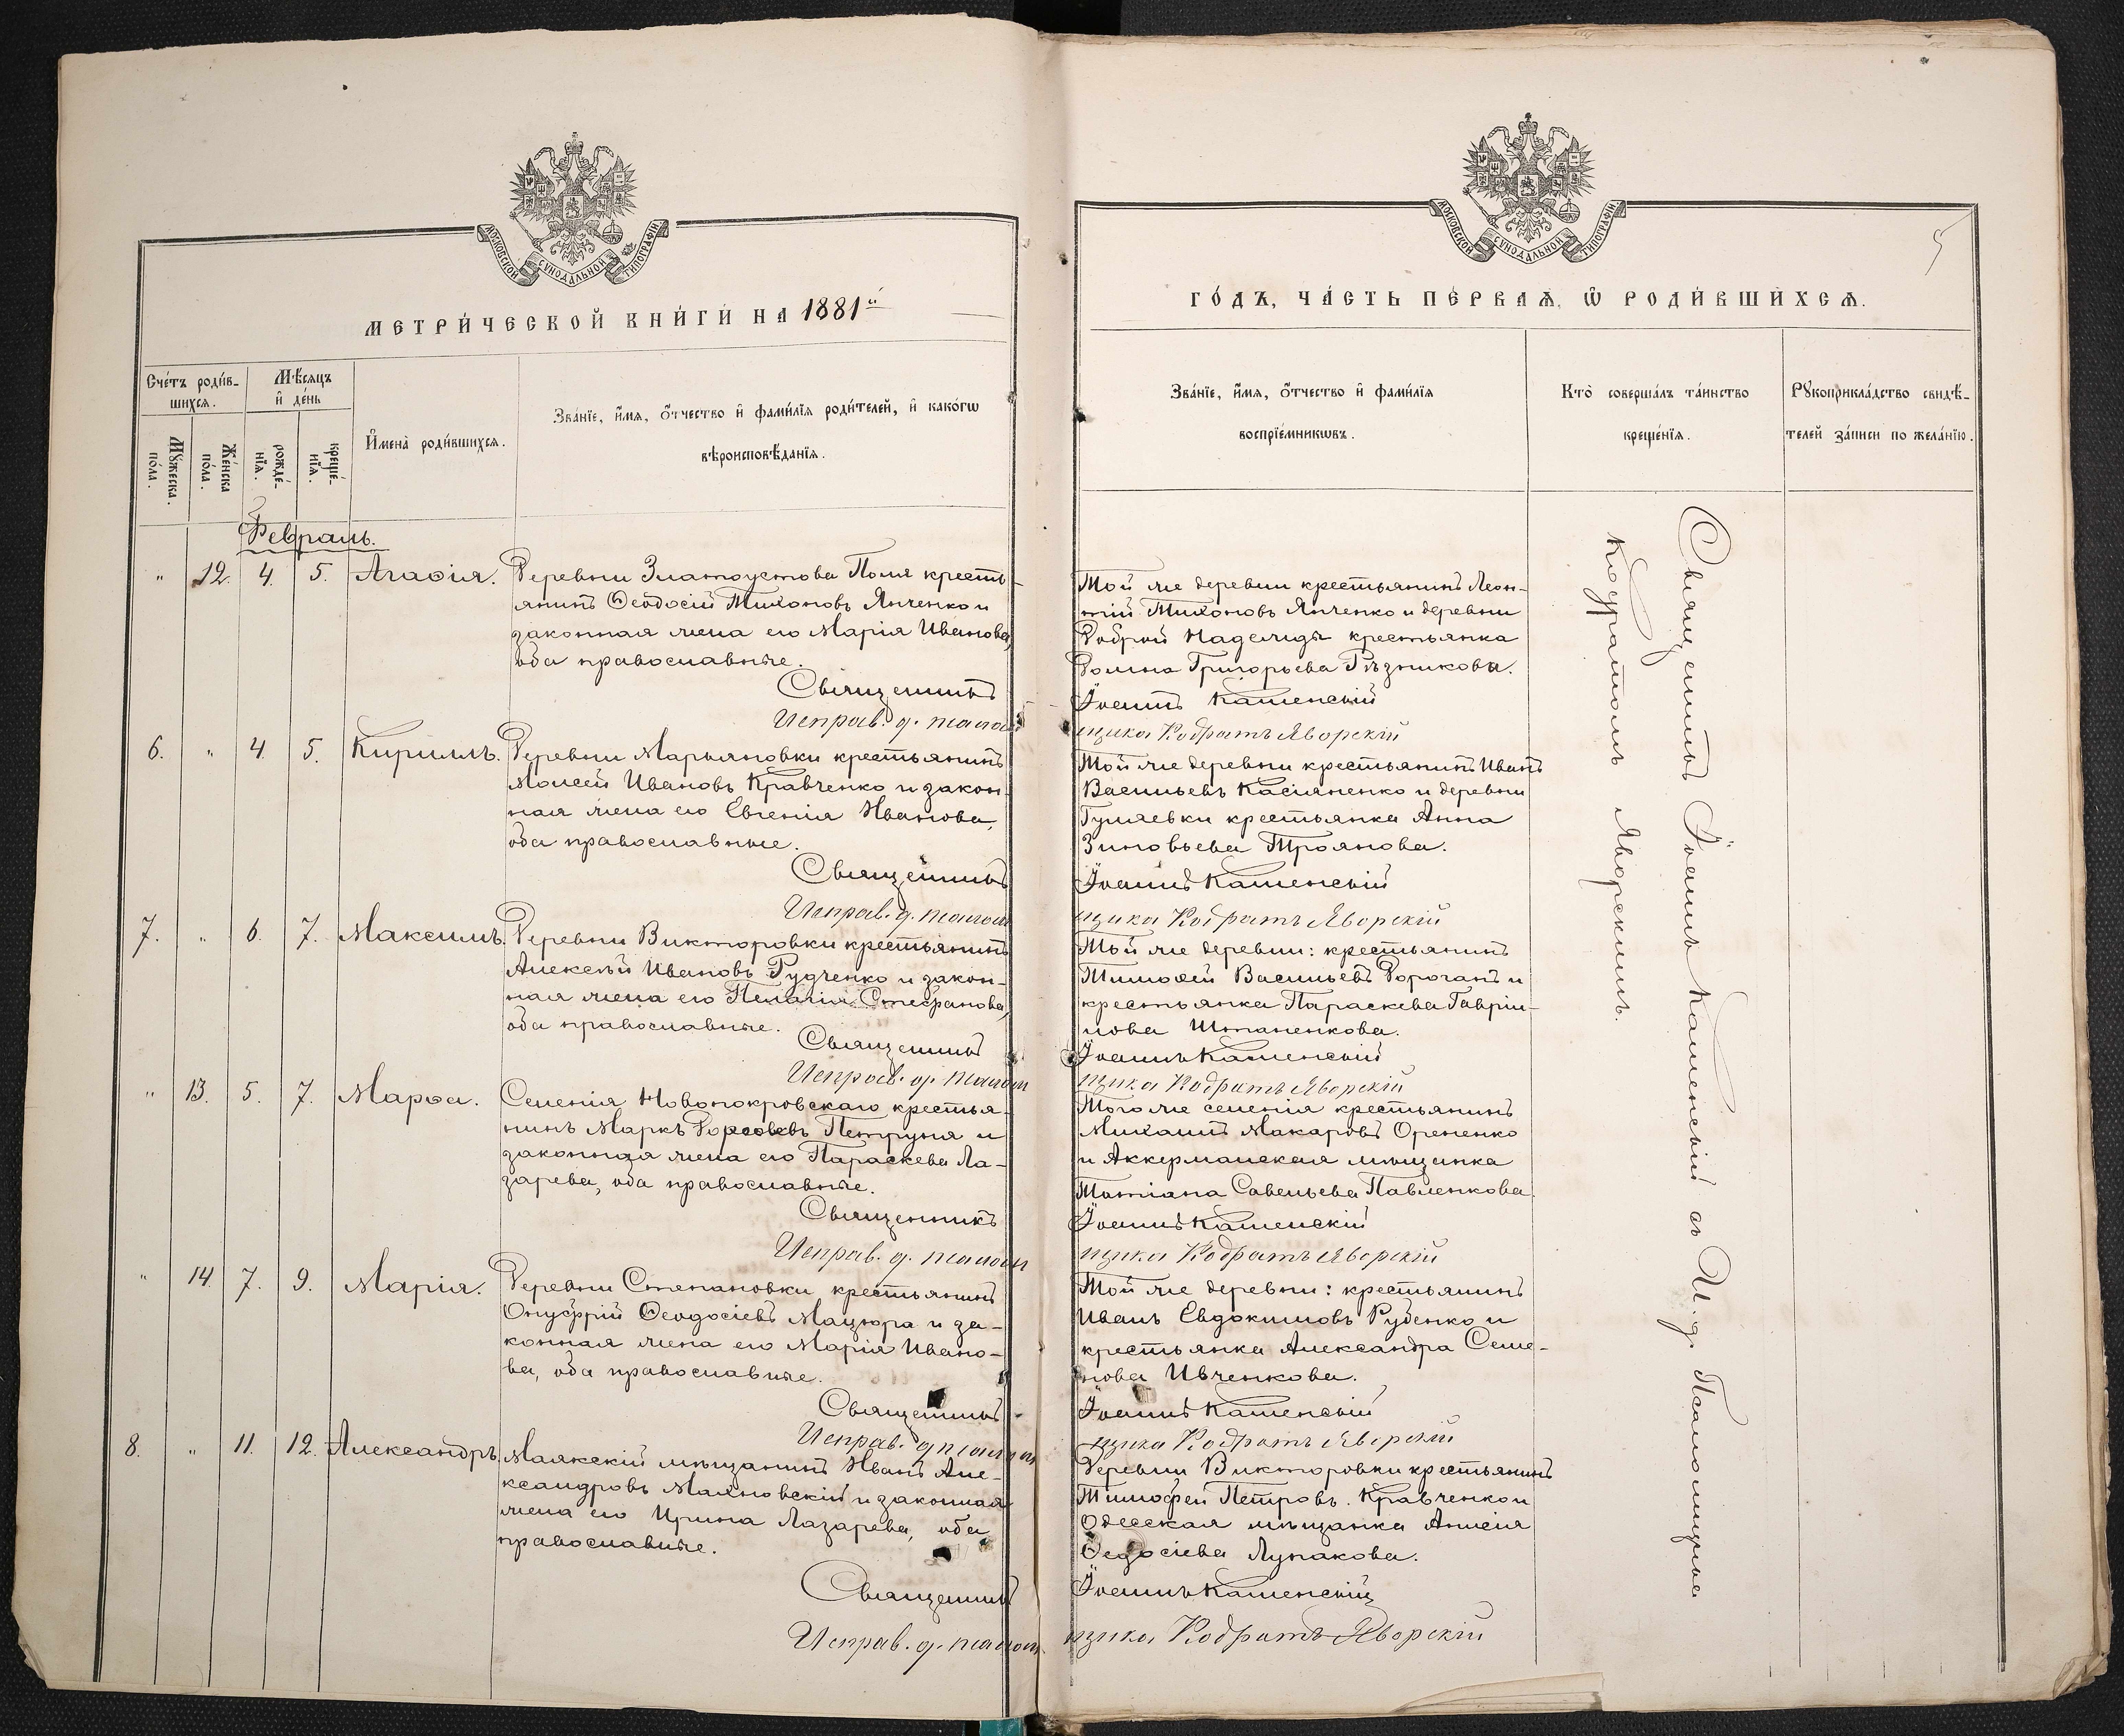 МОСКОВСКОЙ СѴНОДАЛЬНОЙ ТИПОГРАФІИ
МЕТРИ́ЧЕСКОЙ КНИ́ГИ НА 1881й
Сче́тъ роди́в-
шихсѧ.
Мѣ́сяцъ
и҆ де́нь
Мꙋ́жеска
по́ла.
Же́нска
по́ла.
рожде́-
нїѧ.
креще́-
нїѧ.
И҆мена̀ роди́вшихсѧ.
Зва́нїе, и҆́мѧ, ѻ҆́тчество и҆ фами́лїѧ роди́телей, и҆ како́гѡ
вѣроисповѣ́данїѧ.
Февраль.
" 12. 4. 5. Агаѳія. Деревни Златоустова Поля кресть-
янинъ Ѳеодосій Тихоновъ Янченко и
законная жена его Марія Иванова,
оба православные.
Священникъ
Исправ. д. псалом
6. " 4. 5. Кириллъ. Деревни Марьяновки крестьянинъ
Моисей Ивановъ Кравченко и закон-
ная жена его Евгенія Иванова,
оба православные.
Священникъ
Исправ. д. псалом
7. " 6. 7. Максимъ. Деревни Викторовки крестьянинъ
Алексѣй Ивановъ Рудченко и закон-
ная жена его Пелагія Стефанова,
оба православные.
Священникъ
Исправ. д. псалом
" 13. 5. 7. Марѳа. Селенія Новопокровскаго крестья-
нинъ Маркъ Петруня и
законная жена его Параскева Ла-
зарева, оба православные.
Священникъ
Исправ. д. псалом
" 14. 7. 9. Марія. Деревни Степановки крестьянинъ
Онуфрій Ѳеодосіевъ Мацюра и за-
конная жена его Марія Ивано-
ва, оба православные.
Священникъ
Исправ. д. псалом
8. " 11. 12. Александръ. Маякскій мѣщанинъ Иванъ Але-
ксандровъ Маяновскій и законная
жена его Ирина Лазарева, оба
православные.
Священникъ
Исправ. д. псалом
МОСКОВСКОЙ СѴНОДАЛЬНОЙ ТИПОГРАФІИ
5
ГО́ДЪ, ЧА́СТЬ ПЕ́РВАѦ, Ѡ҆ РОДИ́ВШИХСѦ.
Зва́нїе, и҆́мѧ, ѻ҆́тчество и҆ фами́лїѧ
воспрїе́мникѡвъ.
Кто̀ соверша́лъ та́инство
креще́нїѧ.
Рꙋкоприкла́дство свидѣ́-
телей за́писи по жела́нїю.
Той же деревни крестьянинъ Леон-
тій Тихоновъ Янченко и деревни
Доброй Надежды крестьянка
Домна Григорьева Рѣзникова.
Іоаннъ Каменскій
щика Кодратъ Яворскій
Той же деревни крестьянинъ Иванъ
Васильевъ Касіяненко и деревни
Гуляевки крестьянка Анна
Зиновьева Троянова.
Іоаннъ Каменскій
щика Кодратъ Яворскій
Той же деревни: крестьянинъ
Тимоѳей Васильевъ Дороганъ и
крестьянка Параскева Гаврии-
лова Штаненкова.
Іоаннъ Каменскій
щика Кодратъ Яворскій
Того же селенія крестьянинъ
Михаилъ Макаровъ Орененко
и Аккерманская мѣщанка
Татіана Савельева Павленкова.
Іоаннъ Каменскій
щика Кодратъ Яворскій
Той же деревни: крестьянинъ
Иванъ Евдокимовъ Руденко и
крестьянка Александра Семе-
нова Ивченкова.
Іоаннъ Каменскій
щика Кодратъ Яворскій
Деревни Викторовки крестьянинъ
Тимофей Петровъ Кравченко и
Одесская мѣщанка Анисія
Ѳедосіева Лупакова.
Іоаннъ Каменскій
щика Кодратъ Яворскій
Священникъ Іоаннъ Каменскій съ И. д. Псаломщика
Кодратомъ Яворскимъ.